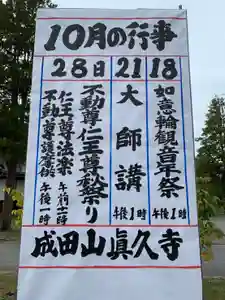 10月の行事
18日
如意輪観音年祭
午後1時
21日
大師講
午後1時
28日
不動尊仁王尊秋祭り
仁王尊法楽 午前十一時
不動尊護摩供 午後一時
成田山眞久寺